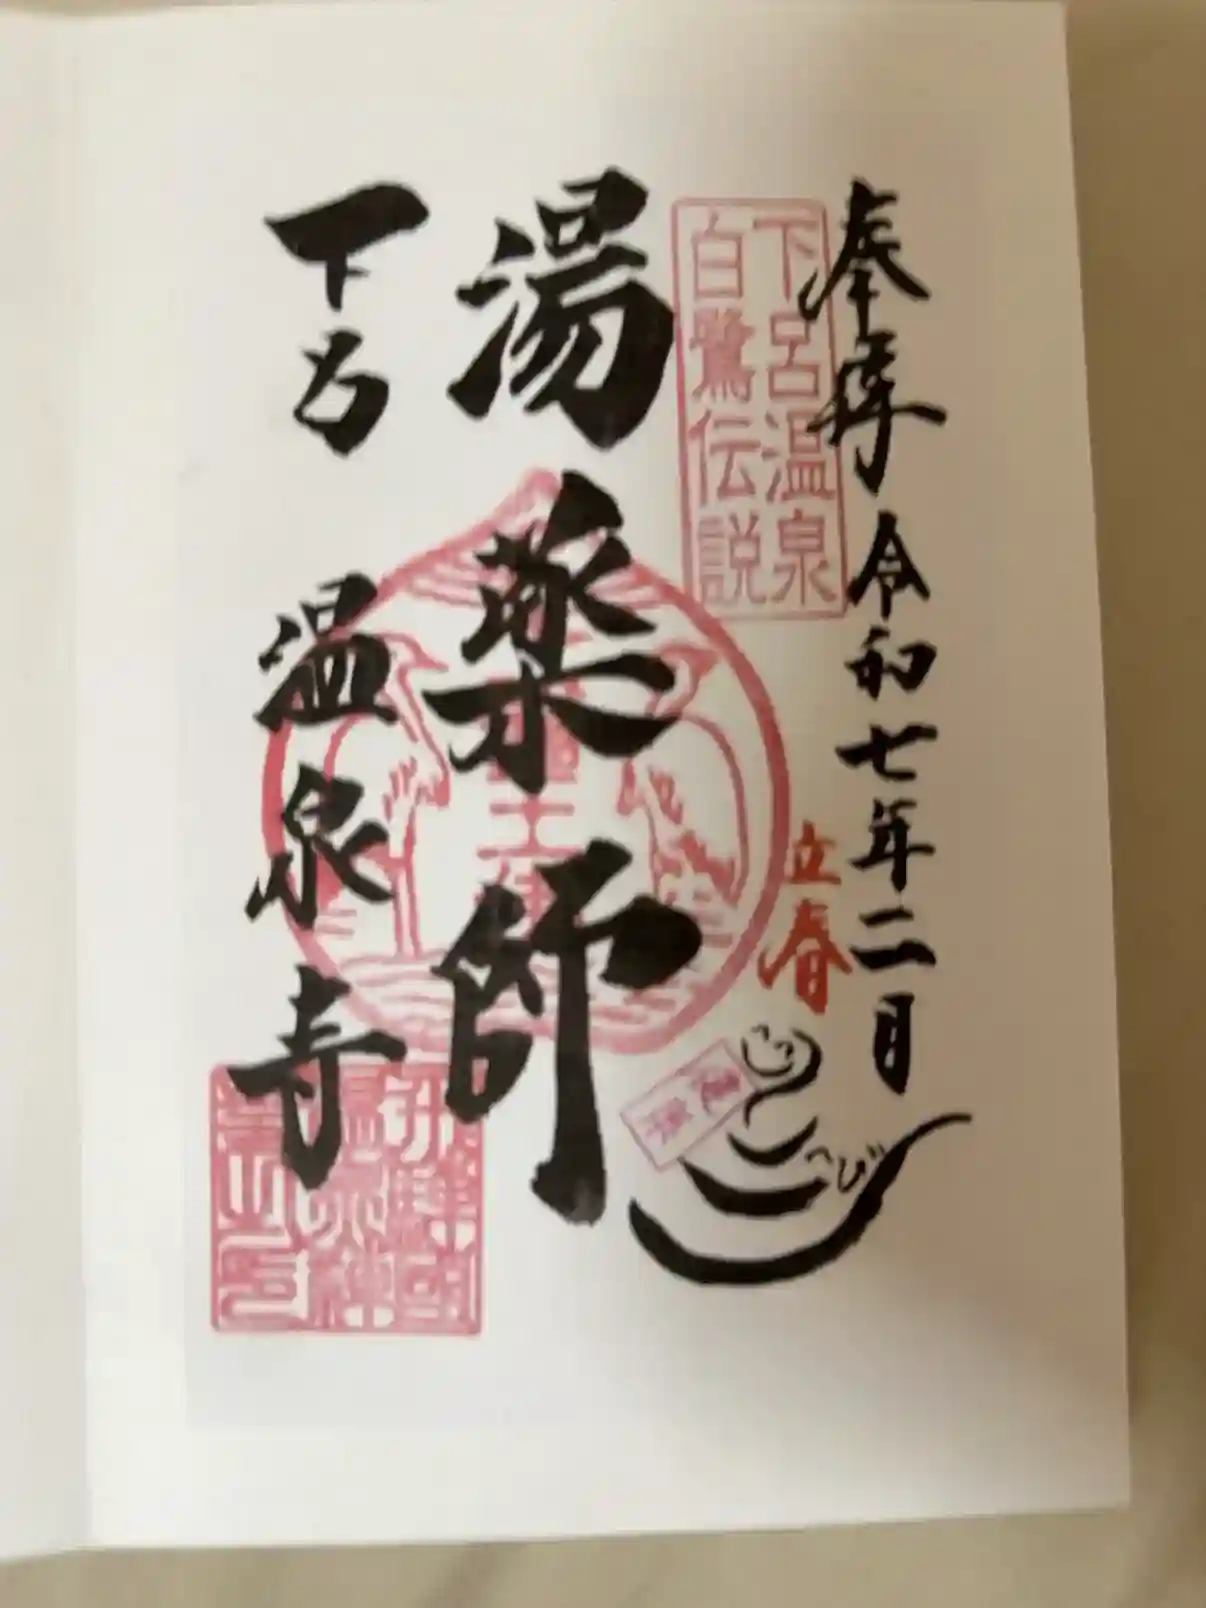 奉拝 令和七年二月
立春
へび
下呂温泉
白鷺伝説
湯薬師
下呂 温泉寺